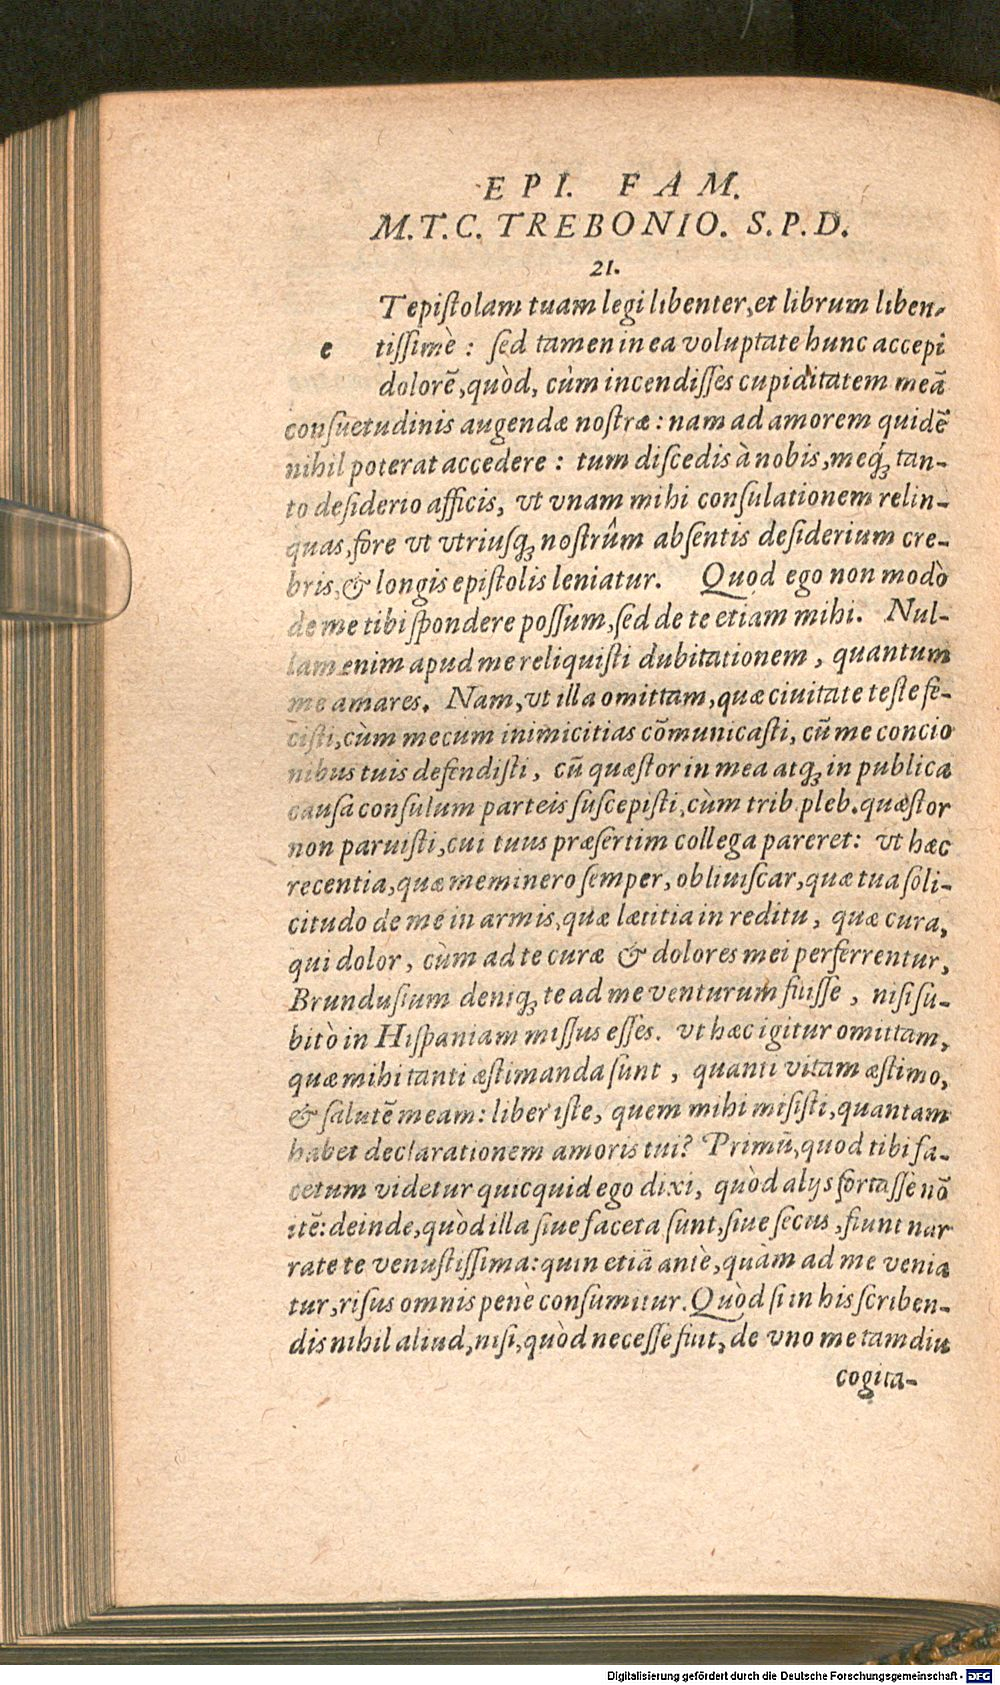 EPI. FAM.
M.T.C. TREBONIO. S.P.D.
21.
T epiſtolam tuam legi libenter, et librum liben-
e tiſſimè : ſed tamen in ea voluptate hunc accepi
dolorē, quòd, cùm incendiſſes cupiditatem meā
conſuetudinis augendæ noſtræ : nam ad amorem quidē
nihil poterat accedere : tum diſcedis à nobis, meq́ꝫ tan-
to deſiderio afficis, vt vnam mihi conſulationem relin-
quas, fore vt vtriuſqꝫ noſtrûm abſentis deſiderium cre-
bris, & longis epiſtolis leniatur. Quod ego non modò
de me tibi ſpondere poſſum, ſed de te etiam mihi. Nul-
lam enim apud me reliquiſti dubitationem, quantum
me amares. Nam, vt illa omittam, quæ ciuitate teſte fe-
ciſti, cùm mecum inimicitias cōmunicaſti, cū me concio
nibus tuis defendiſti, cū quæſtor in mea atqꝫ in publica
cauſa conſulum parteis ſuſcepiſti, cùm trib. pleb. quæſtor
non paruiſti, cui tuus præſertim collega pareret: vt hæc
recentia, quæ meminero ſemper, obliuiſcar, quæ tua ſoli-
citudo de me in armis, quæ lætitia in reditu, quæ cura,
qui dolor, cùm ad te curæ & dolores mei perferrentur,
Brunduſium deniqꝫ te ad me venturum fuiſſe, niſi ſu-
bitò in Hiſpaniam miſſus eſſes. vt hæc igitur omittam,
quæ mihi tanti æſtimanda ſunt, quanti vitam æſtimo,
& ſalutē meam: liber iſte, quem mihi miſiſti, quantam
habet declarationem amoris tui? Primū, quod tibi fa-
cetum videtur quicquid ego dixi, quòd alijs fortaſſè nō
itē: deinde, quòd illa ſiue faceta ſunt, ſiue ſecus, fiunt nar
rate te venuſtiſſima: quin etiā antè, quàm ad me venia
tur, riſus omnis penè conſumitur. Quòd ſi in his ſcriben-
dis nihil aliud, niſi, quòd neceſſe fuit, de vno me tamdiu
cogita-
Digitalisierung gefördert durch die Deutsche Forschungsgemeinschaft - DFG